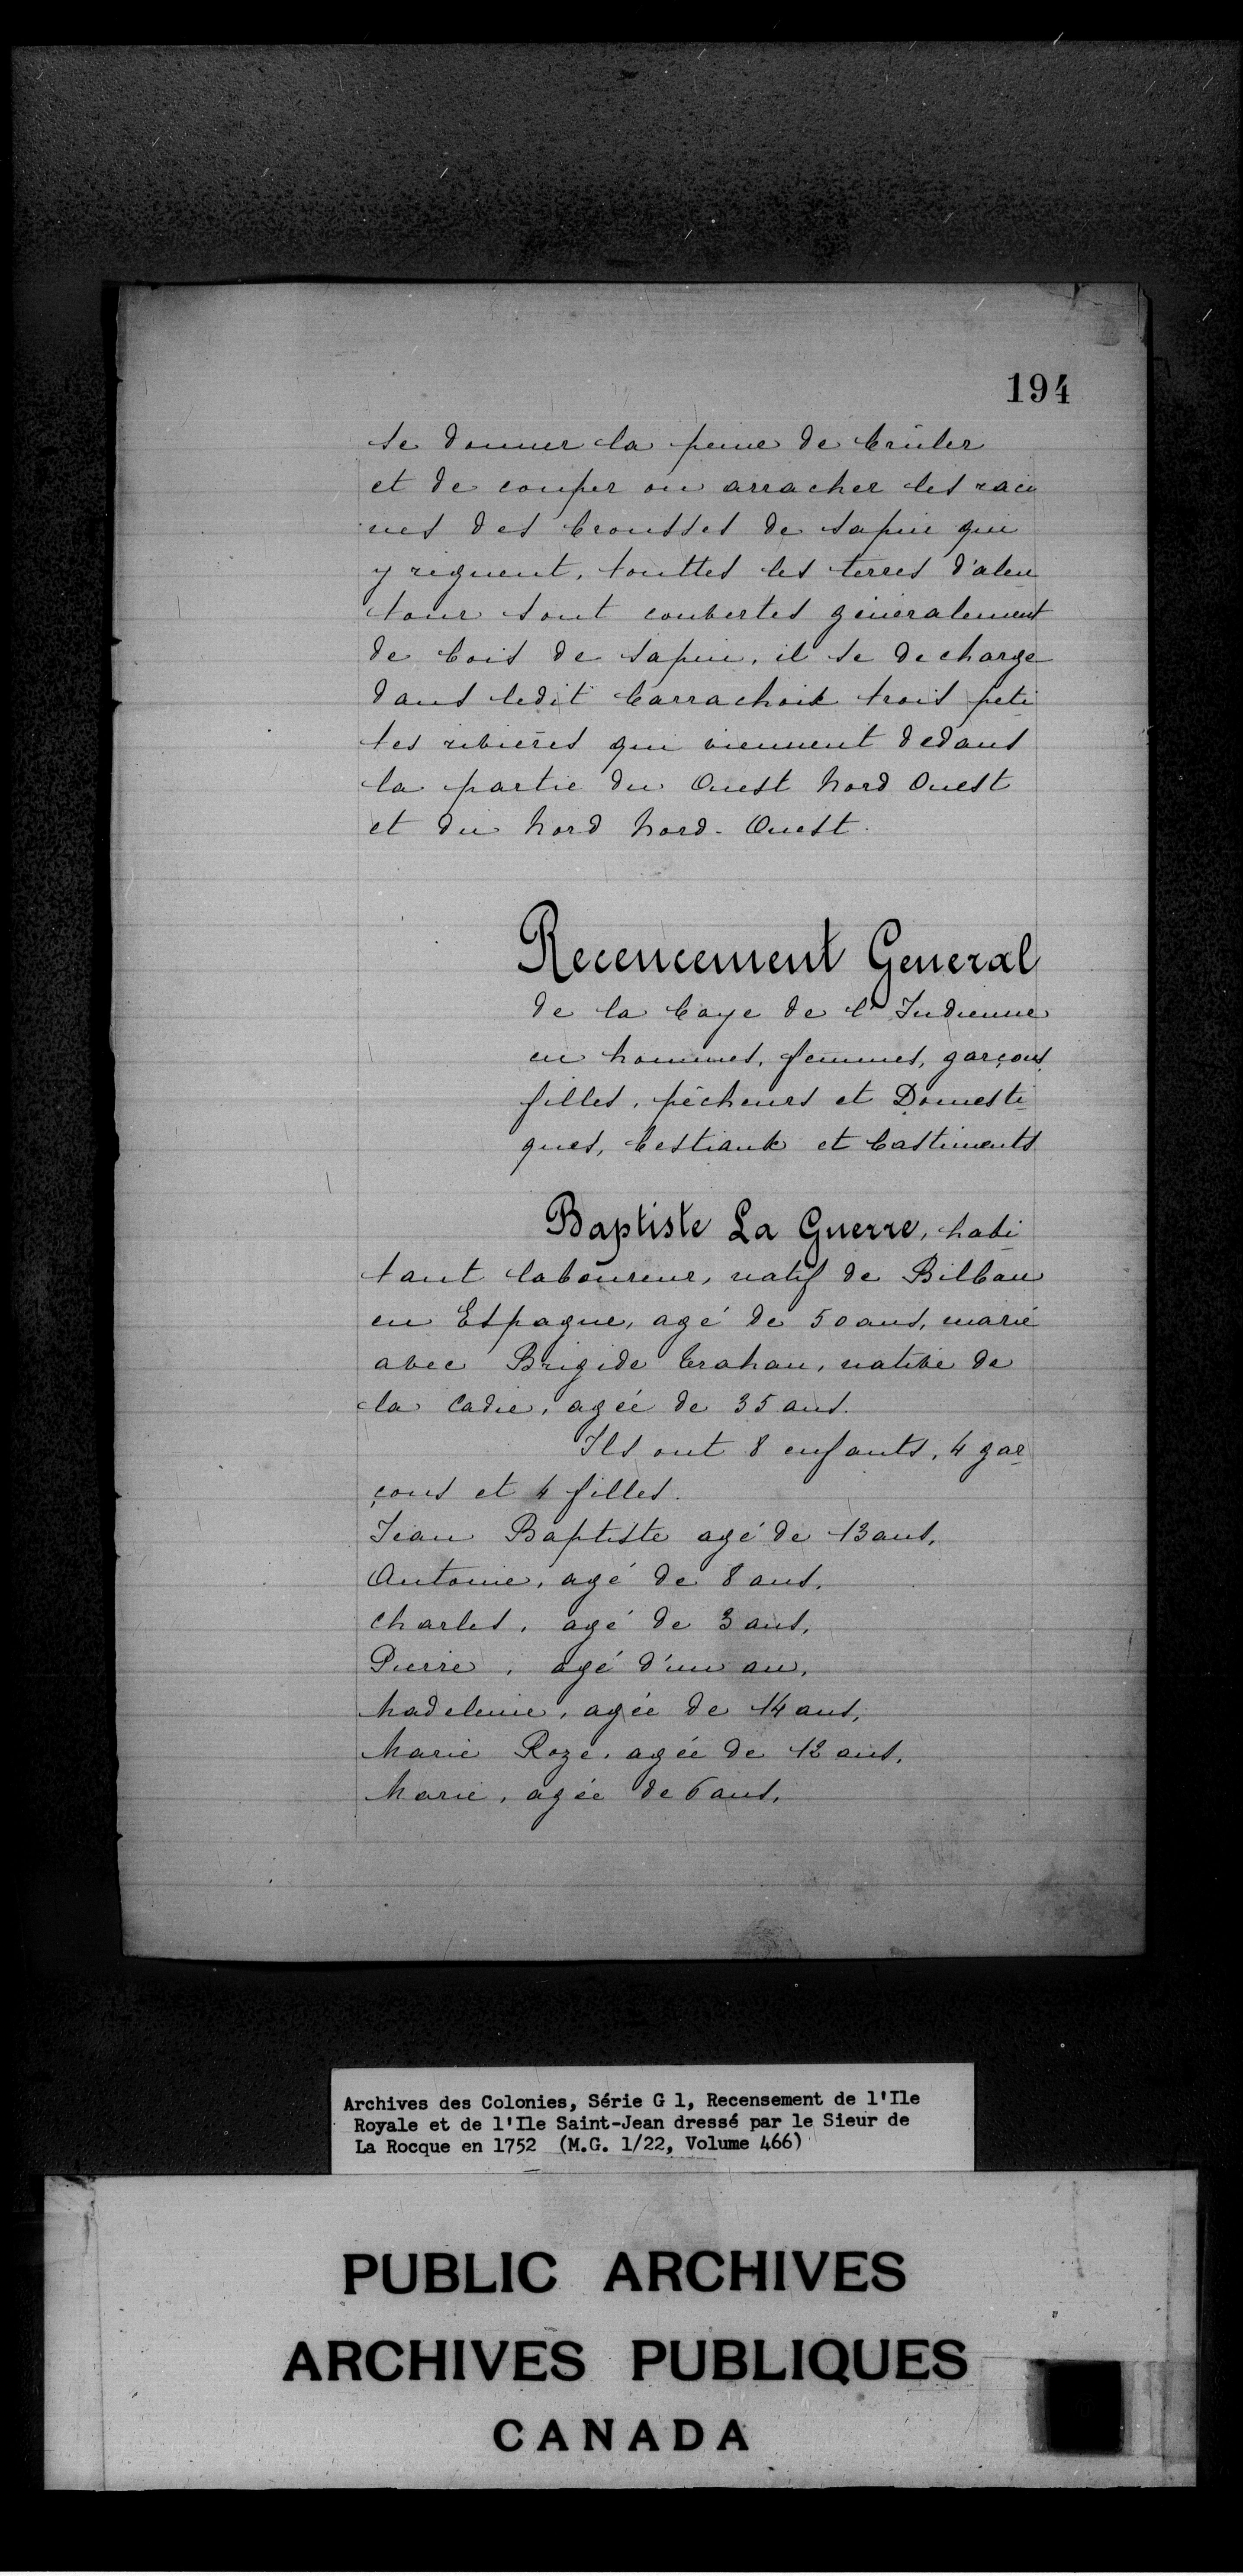 194
se donner la peine de brûler
et de couper ou arracher les raci
nes des brousses de sapin qui
y regnent, touttes les terres d'alen
tour sont couvertes généralement
de bois de sapin, il se decharge
dans ledit barrachoix trois peti
tes rivières qui viennent dedans
la partie du Ouest Nord Ouest
et du Nord Nord-Ouest.
Recencement General
de la baye de l'Indienne
en hommes, femmes, garçons,
filles, pêcheurs et Domesti-
ques, bestiaux et bastiments
Baptiste La Guerre, habi-
tant laboureur, natif de Bilbau
en Espagne, agé de 50 ans, marié
avec Brigide Trahan, native de
la Cadie, agée de 35 ans.
Ils ont 8 enfants, 4 gar-
çons et 4 filles.
Jean Baptiste agé de 13 ans,
Antoine, agé de 8 ans,
Charles, agé de 3 ans,
Pierre, agé d'un an,
Madeleine, agée de 14 ans,
Marie Roze, agée de 12 ans,
Marie, agée de 6 ans,
Archives des Colonies, Série G 1, Recensement de l'Ile
Royale et de l'Ile Saint-Jean dressé par le Sieur de
La Rocque en 1752 (M.G. 1/22, Volume 466)
PUBLIC ARCHIVES
ARCHIVES PUBLIQUES
CANADA